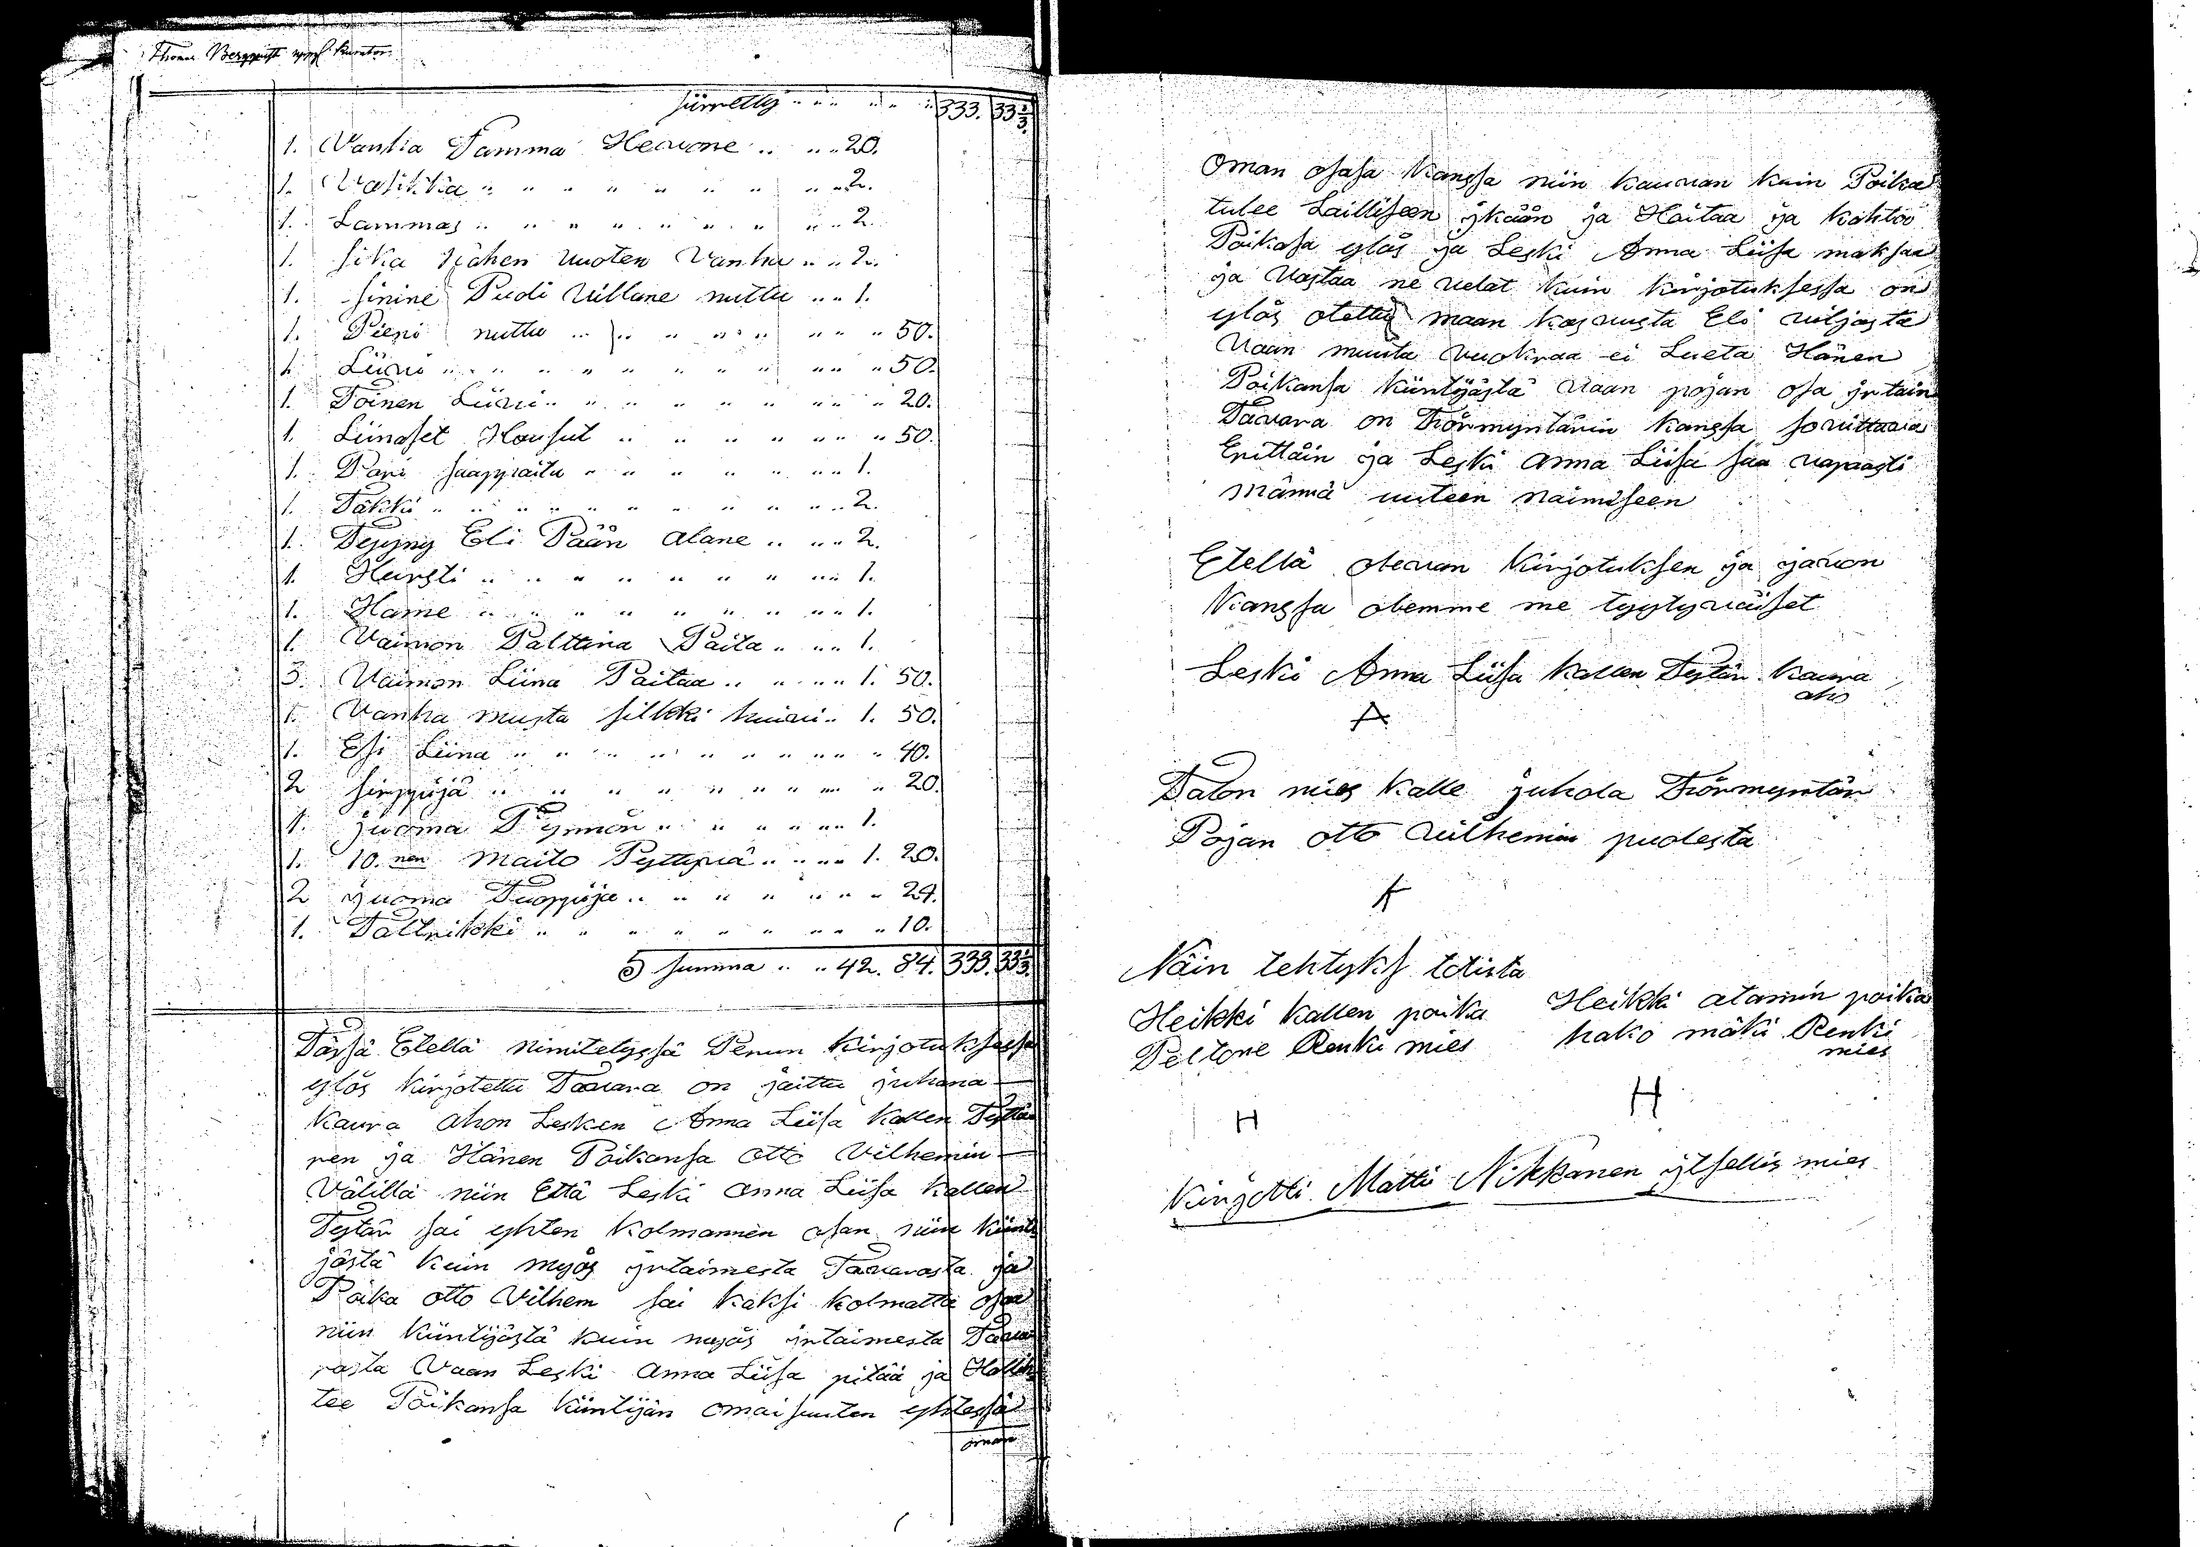 Thomas Bergqvist kurator
siirretty .. .. .. .. .. 333. 33 1/3.
1. Vanha Tamma Hevone .. .. .. 20.
1. Vasikka .. .. .. .. .. .. .. .. 2.
1. Lammas .. .. .. .. .. .. .. .. 2.
1. sika Kahen vuoten Vanha .. .. 2.
1. sinine Puoli villane nuttu .. .. 1.
1. Pieni nuttu .. .. .. .. .. .. .. 50.
1. Liivi .. .. .. .. .. .. .. .. .. 50.
1. Toinen Liivi .. .. .. .. .. .. .. 20.
1. Liinaset Housut .. .. .. .. .. .. 50.
1. Pari saappaita .. .. .. .. .. .. 1.
1. Täkki .. .. .. .. .. .. .. .. .. 2.
1. Tyyny Eli Pään alane .. .. .. 2.
1. Hursti .. .. .. .. .. .. .. .. 1.
1. Hame .. .. .. .. .. .. .. .. 1.
1. Vaimon Palttina Paita .. .. .. 1.
3. Vaimon Liina Paitaa .. .. .. 1. 50.
1. Vanha musta silkki huivi .. 1. 50.
1. Esi Liina .. .. .. .. .. .. .. .. 40.
2 sirppijä .. .. .. .. .. .. .. .. 20.
1. juoma Tynnöri .. .. .. .. .. 1.
1. 10. nen maito Pyttyvä .. .. .. 1. 20.
2 juoma Tuoppija .. .. .. .. .. .. 24.
1. Tallrikki .. .. .. .. .. .. .. .. 10.
summa .. .. 42. 84. 333. 33 1/3.
Tässä Etellä nimitelyssä Perun kirjotuksessa
ylös kirjotettu Tavara on jaittu juhana
Kaura ahon Lesken Anna Liisa Kallen Tyttä
ren ja Hänen Poikansa Otto Vilhemin
Välillä niin Että Leski Anna Liisa Kallen
Tytär sai yhten Kolmannen osan niin kiinti
jästä kuin myös irtaimesta Tavarasta ja
Poika otto Vilhem sai kaksi kolmatta osaa
niin kiintijästä kuin myös irtaimesta Tava
rasta Vaan Leski Anna Liisa pitää ja Hallit
tee Poikansa Kiintijän omaisuuten yhtessä
oman
Oman osasa kanssa niin kauvan kuin Poika
tulee Lailliseen ijkään ja Hoitaa ja kahtoo
Poikasa ylös ja Leski Anna Liisa maksaa
ja vastaa ne velat kuin kirjotuksessa on
ylös otettu maan kasvusta Eli viljasta
Vaan muuta vuokraa ei Lueta Hänen
Poikansa kiintijästä vaan pojan osa irtain
Tavara on Förmyntärin kanssa sovittava
Erittäin ja Leski Anna Liisa saa vapaasti
männä uuteen naimiseen
Etellä olevan kirjotuksen ja javon
Kanssa olemme me tyytyväiset
Leski Anna Liisa Kallen Tytär Kaura
aho
A
Talon mies Kalle juhola Förmyntär
Pojan otto vilhemin puolesta
Näin tehtyks totista
Heikki Kallen poika
Peltone Renki mies
Heikki atamin poika
hako mäki Renki
mies
H
H
Kirjotti Matti Nikkanen itsellis mies